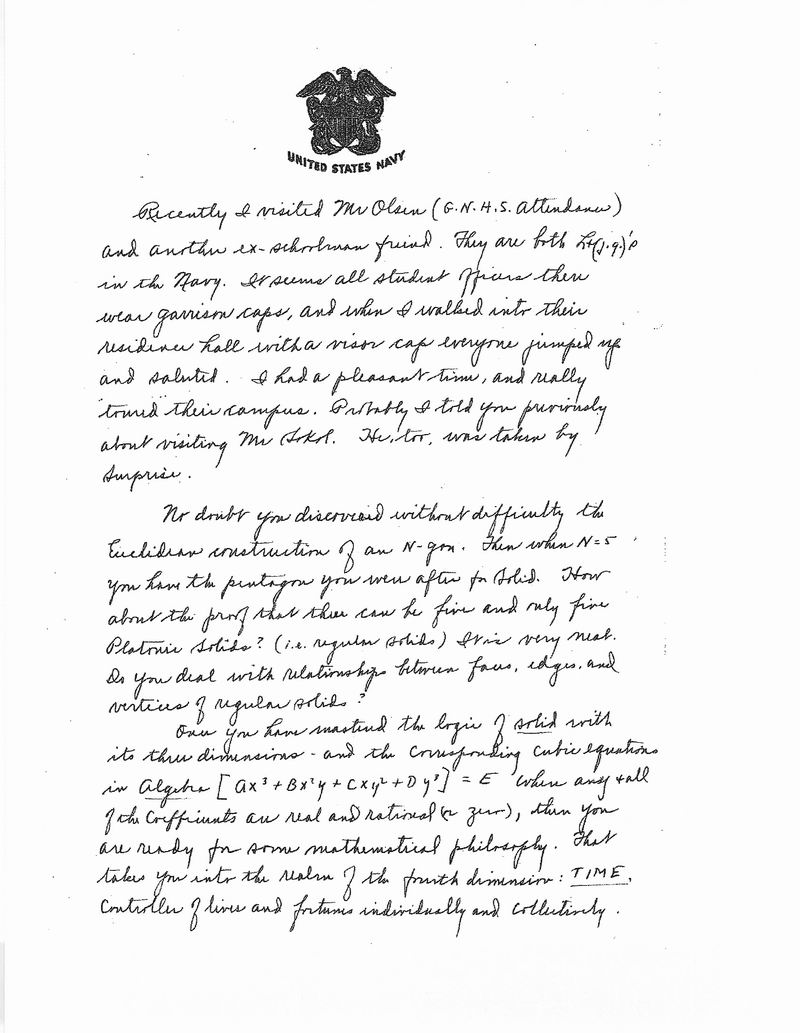 UNITED STATES NAVY
Recently I visited Mr Olsen (G.N.H.S. Attendance)
and another ex-schoolman friend. They are both Lt(j.g.)'s
in the Navy. It seems all student officers there
wear garrison caps, and when I walked into their
residence hall with a visor cap everyone jumped up
and saluted. I had a pleasant time, and really
"toured" their campus. Probably I told you previously
about visiting Mr Sokol. He, too, was taken by
surprise.
No doubt you discovered without difficulty the
Euclidean construction of an N-gon. Then when N=5
you have the pentagon you were after for Solid. How
about the proof that there can be five and only five
Platonic Solids? (i.e. regular solids) It is very neat.
Do you deal with relationships between faces, edges, and
vertices of regular solids?
Once you have mastered the logic of solid with
its three dimensions - and the corresponding cubic equations
in Algebra [Ax³ + Bx²y + Cxy² + Dy³] = E when any & all
of the coefficients are real and rational (or zero), then you
are ready for some mathematical philosophy. That
takes you into the realm of the fourth dimension: TIME,
Controller of lives and fortunes individually and collectively.